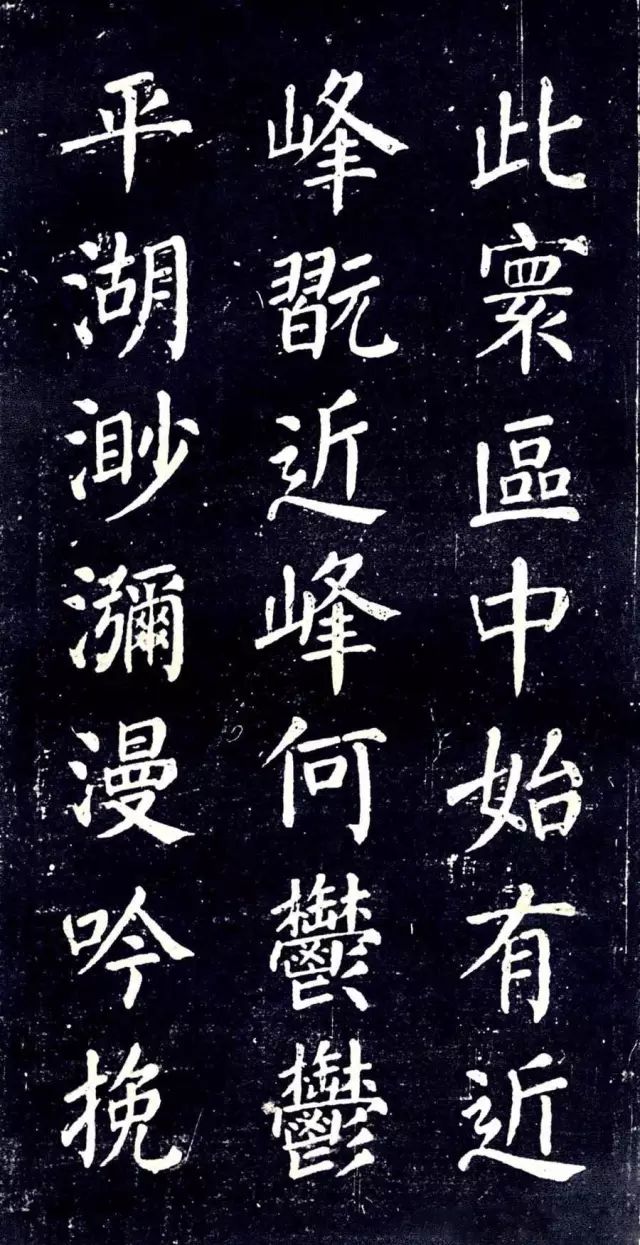 此寰區中始有近
峰既近峰何鬱鬱
平湖渺瀰漫吟挽